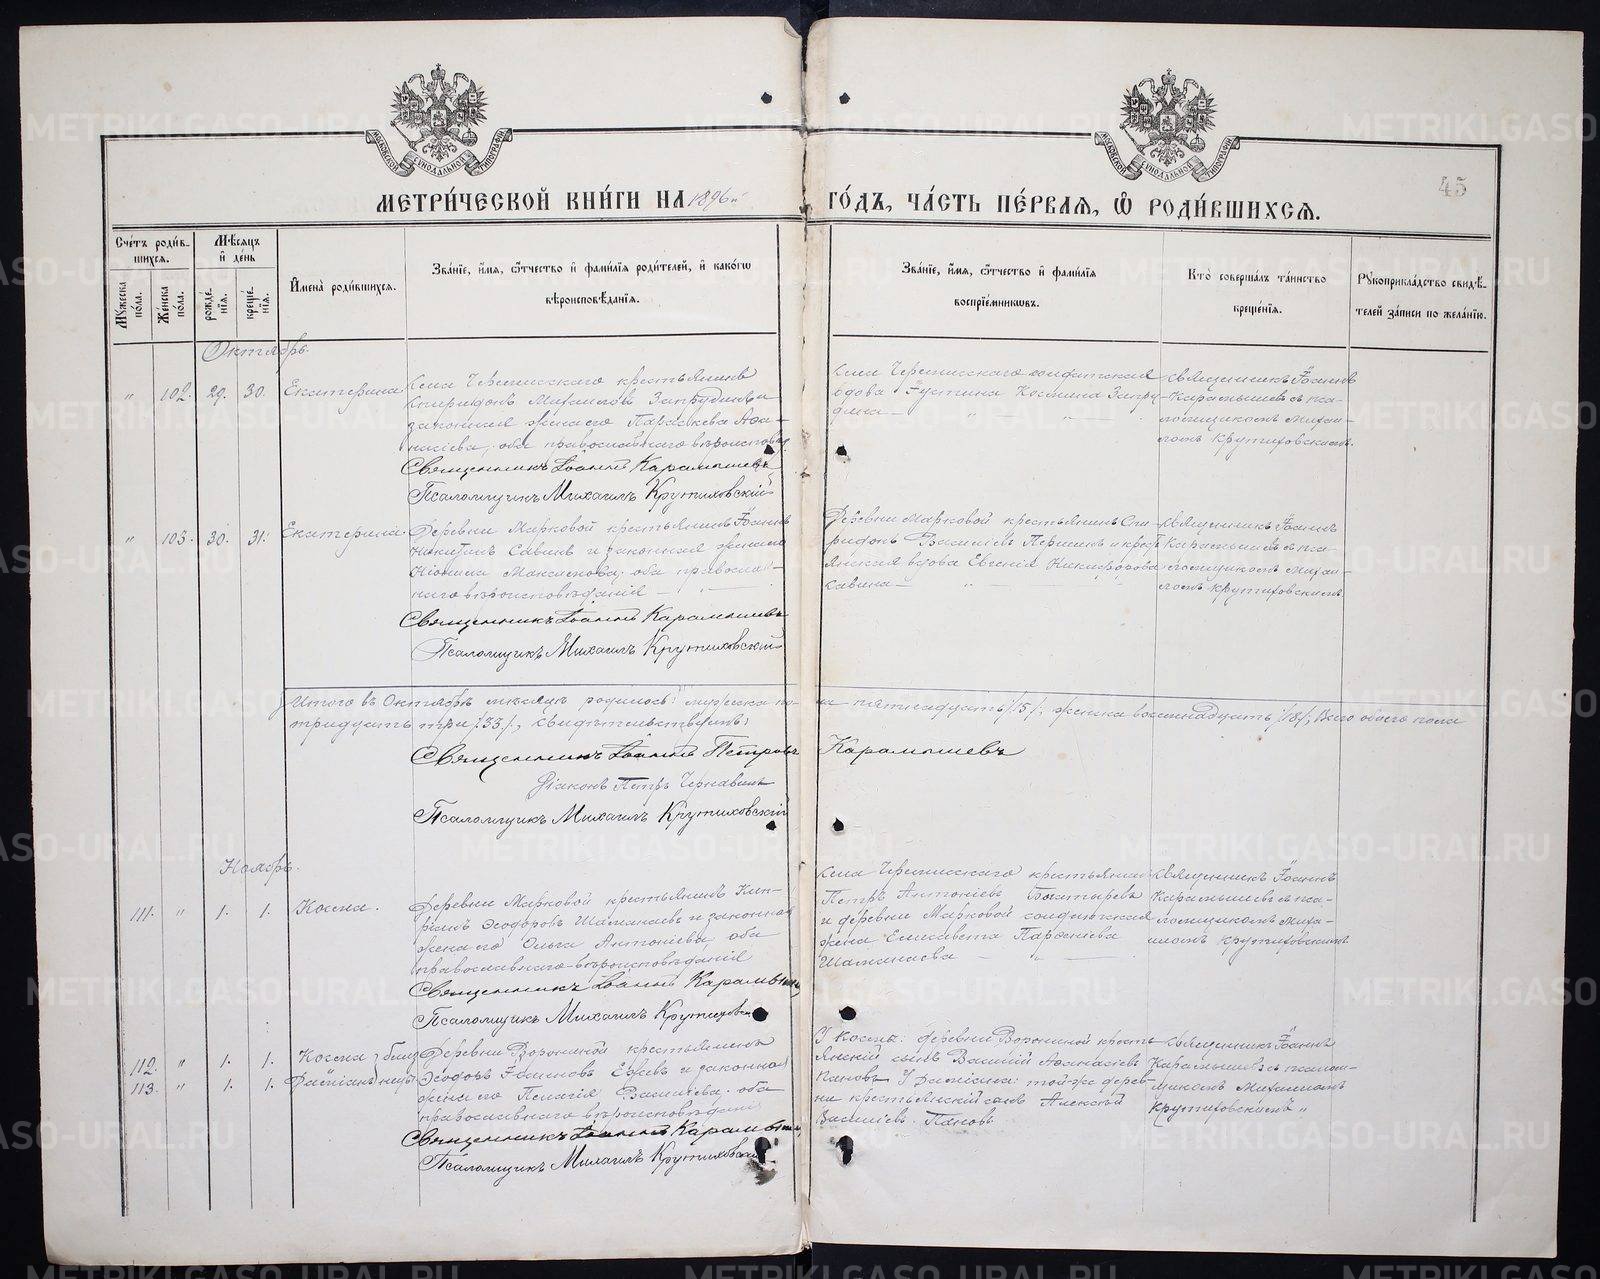 45
МЕТРИ́ЧЕСКОЙ КНИ́ГИ НА 1896й ГО́ДЪ, ЧА́СТЬ ПЕ́РВАЯ, Ѿ РОДИ́ВШИХСЯ.
Сче́тъ роди́в-
шихся.
Му́жеска по́ла.
Же́нска по́ла.
Мѣ́сяцъ и де́нь
рожде́нїя.
креще́нїя.
Имена̀ роди́вшихся.
Зва́нїе, и́мя, ѻ҆́тчество и фами́лїя роди́телей, и како́гѡ
вѣроисповѣ́данїя.
Зва́нїе, и́мя, ѻ҆́тчество и фами́лїя
воспрїе́мникѡвъ.
Кто̀ соверша́лъ та́инство
креще́нїя.
Рукоприкла́дство свидѣ́-
телей за́писи по жела́нїю.
Октябрь.
" 102. 29. 30. Екатерина
Села Черемисскаго крестьянинъ
Спиридонъ Михаиловъ Запрудинъ и
законная жена его Параскева Аѳа-
насіева, оба православнаго вѣроисповѣд.
Священникъ Іоаннъ Карамышевъ
Псаломщикъ Михаилъ Крутиховскій
Села Черемисскаго солдатская
вдова Іустина Космина Запру-
дина
Священникъ Іоаннъ
Карамышевъ съ пса-
ломщикомъ Михаи-
ломъ Крутиховскимъ.
" 103. 30. 31. Екатерина
Деревни Марковой крестьянинъ Іоаннъ
Никитинъ Савинъ и законная жена его
Неонила Максимова, оба правосла-
внаго вѣроисповѣданія
Священникъ Іоаннъ Карамышевъ
Псаломщикъ Михаилъ Крутиховскій
Деревни Марковой крестьянинъ Спи-
ридонъ Васильевъ Першинъ и крест-
янская вдова Евгенія Никифорова
Савина
Священникъ Іоаннъ
Карамышевъ съ пса-
ломщикомъ Михаи-
ломъ Крутиховскимъ
Итого въ Октябрѣ мѣсяцѣ родилось: мужеска по-
ла пятнадцать /15/, женска восемнадцать /18/, Всего обоего пола
тридцать три /33/, свидѣтельствуемъ:
Священникъ Іоаннъ Петровъ Карамышевъ
Діаконъ Петръ Чернавинъ
Псаломщикъ Михаилъ Крутиховскій
Ноябрь.
111. " 1. 1. Косма.
Деревни Марковой крестьянинъ Кип-
ріанъ Ѳеодоровъ Шаманаевъ и законная
жена его Ольга Антоніева, оба
православнаго вѣроисповѣданія
Священникъ Іоаннъ Карамышевъ
Псаломщикъ Михаилъ Крутиховскій
Села Черемисскаго крестьянинъ
Петръ Антоніевъ Богатыревъ
и деревни Марковой солдатская
жена Елисавета Парѳеніева
Шаманаева
Священникъ Іоаннъ
Карамышевъ съ пса-
ломщикомъ Миха-
иломъ Крутиховскимъ
112. " 1. 1. Косма } близ
113. " 1. 1. Даміанъ } нецы
Деревни Ворониной крестьянинъ
Ѳеодоръ Іоанновъ Ежовъ и законная
жена его Пелагія Василіева, оба
православнаго вѣроисповѣданія
Священникъ Іоаннъ Карамышевъ
Псаломщикъ Михаилъ Крутиховскій
У Космы: деревни Ворониной кресть-
янскій сынъ Василій Аѳанасіевъ
Пановъ У Даміана: той-же дерев-
ни крестьянскій сынъ Алексѣй
Василіевъ Пановъ.
Священникъ Іоаннъ
Карамышевъ съ псалом-
щикомъ Михаиломъ
Крутиховскимъ "